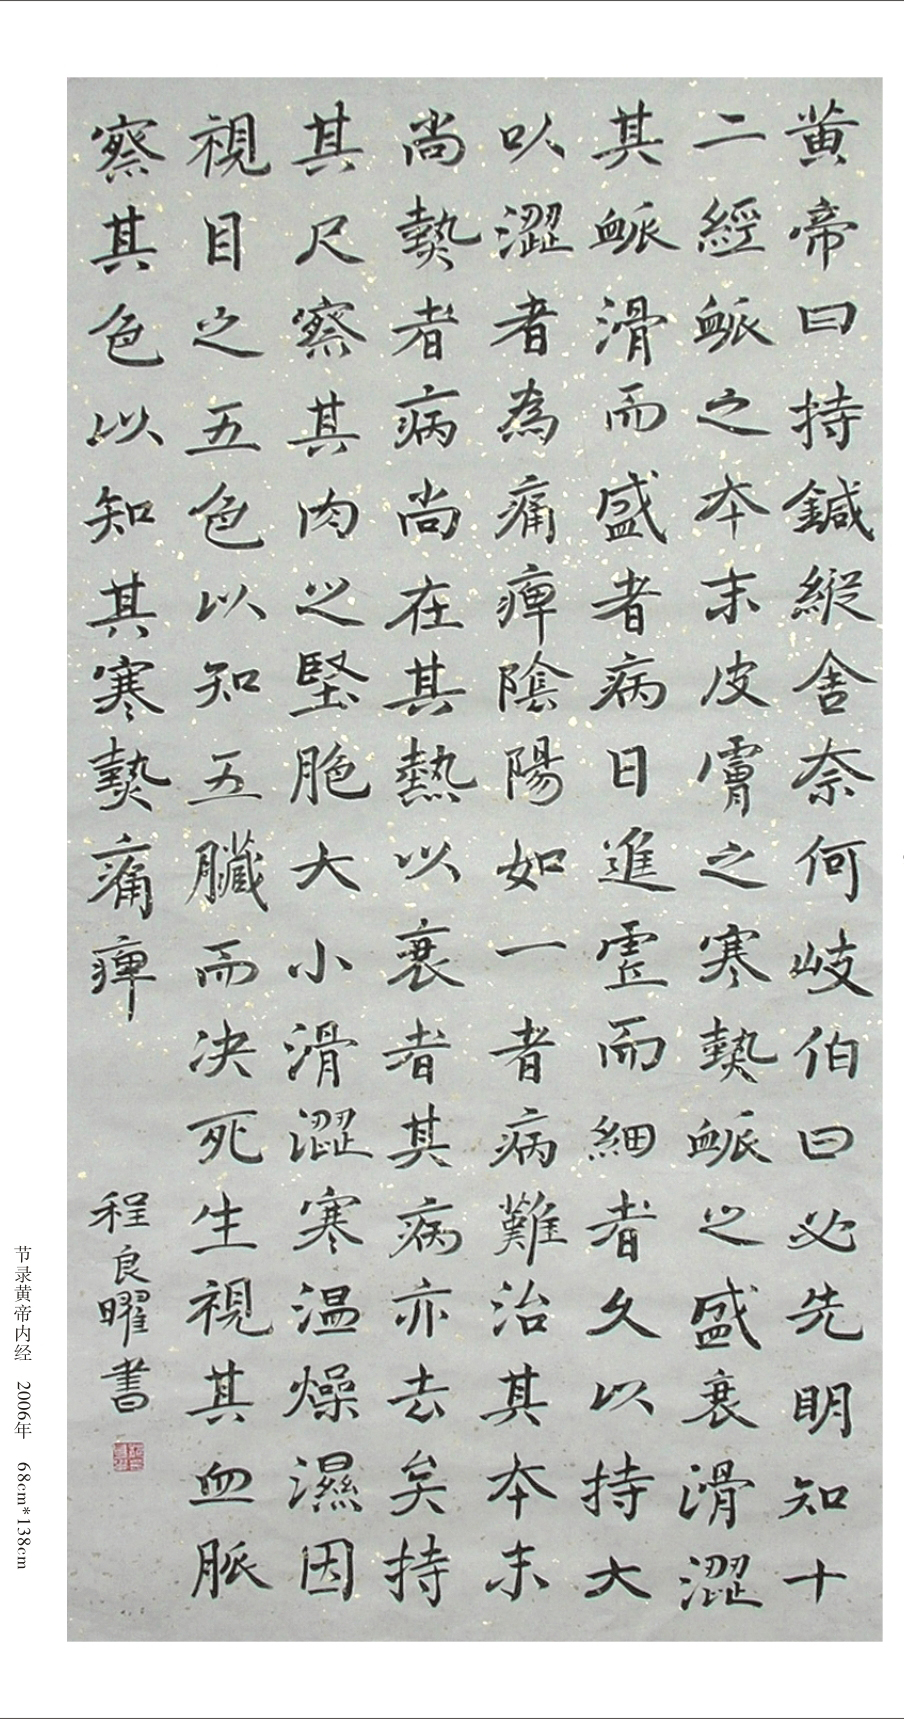 黄帝曰持鍼縱舍奈何岐伯曰必先明知十
二經衇之本末皮膚之寒熱衇之盛衰滑澀
其衇滑而盛者病日進虛而細者久以持大
以澀者為痛痺陰陽如一者病難治其本末
尚熱者病尚在其熱以衰者其病亦去矣持
其尺察其肉之堅脃大小滑澀寒温燥濕因
視目之五色以知五臟而决死生視其血脈
察其色以知其寒熱痛痺
程良曜書
节录黄帝内经 2006年 68cm*138cm